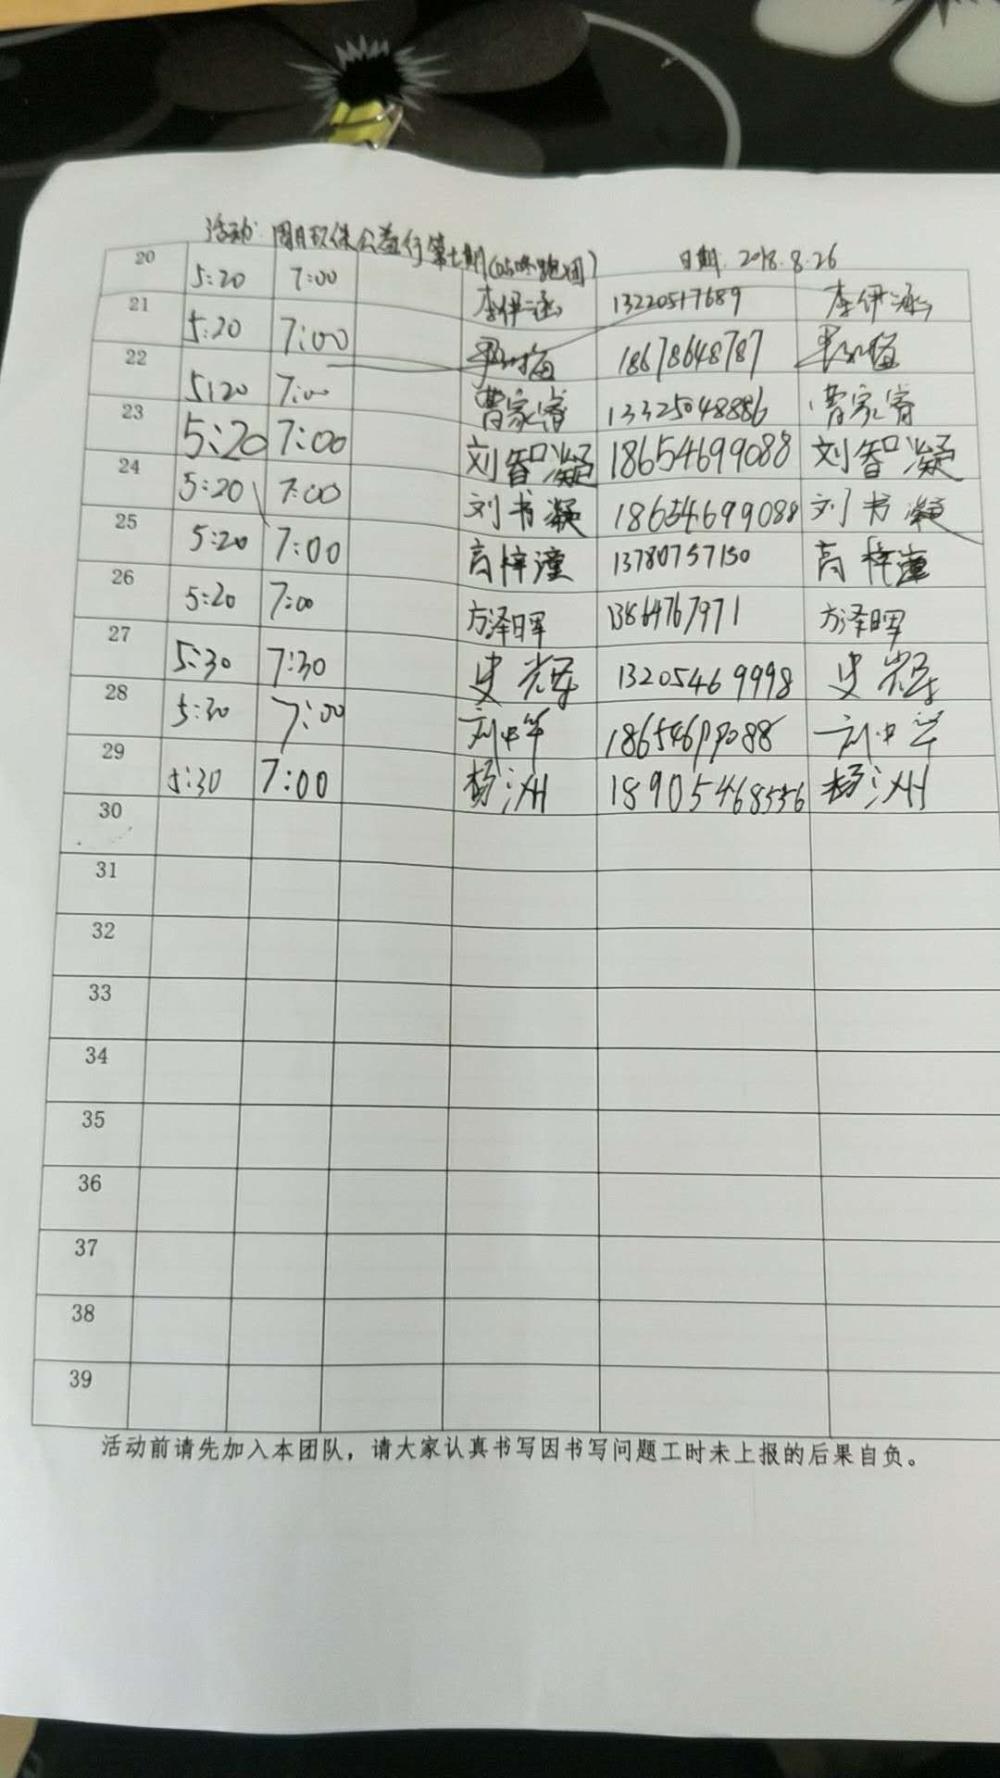 活动: 周月环保公益行第七期(咪跑团) 日期. 2018.8.26
20 5:20 7:00 李伊涵 13220517689 李伊涵
21 5:20 7:00 18678648787
22 5:20 7:00 曹家睿 13325048886 曹家睿
23 5:20 7:00 刘智凝 18654699088 刘智凝
24 5:20 7:00 刘书凝 18654699088 刘书凝
25 5:20 7:00 高梓潼 13780757150 高梓潼
26 5:20 7:00 方泽晖 13864767971 方泽晖
27 5:30 7:30 史光辉 13205469998 史光辉
28 5:30 7:00 刘中华 18654699088 刘中华
29 5:30 7:00 杨洲 18905468556 杨洲
30
31
32
33
34
35
36
37
38
39
活动前请先加入本团队，请大家认真书写因书写问题工时未上报的后果自负。